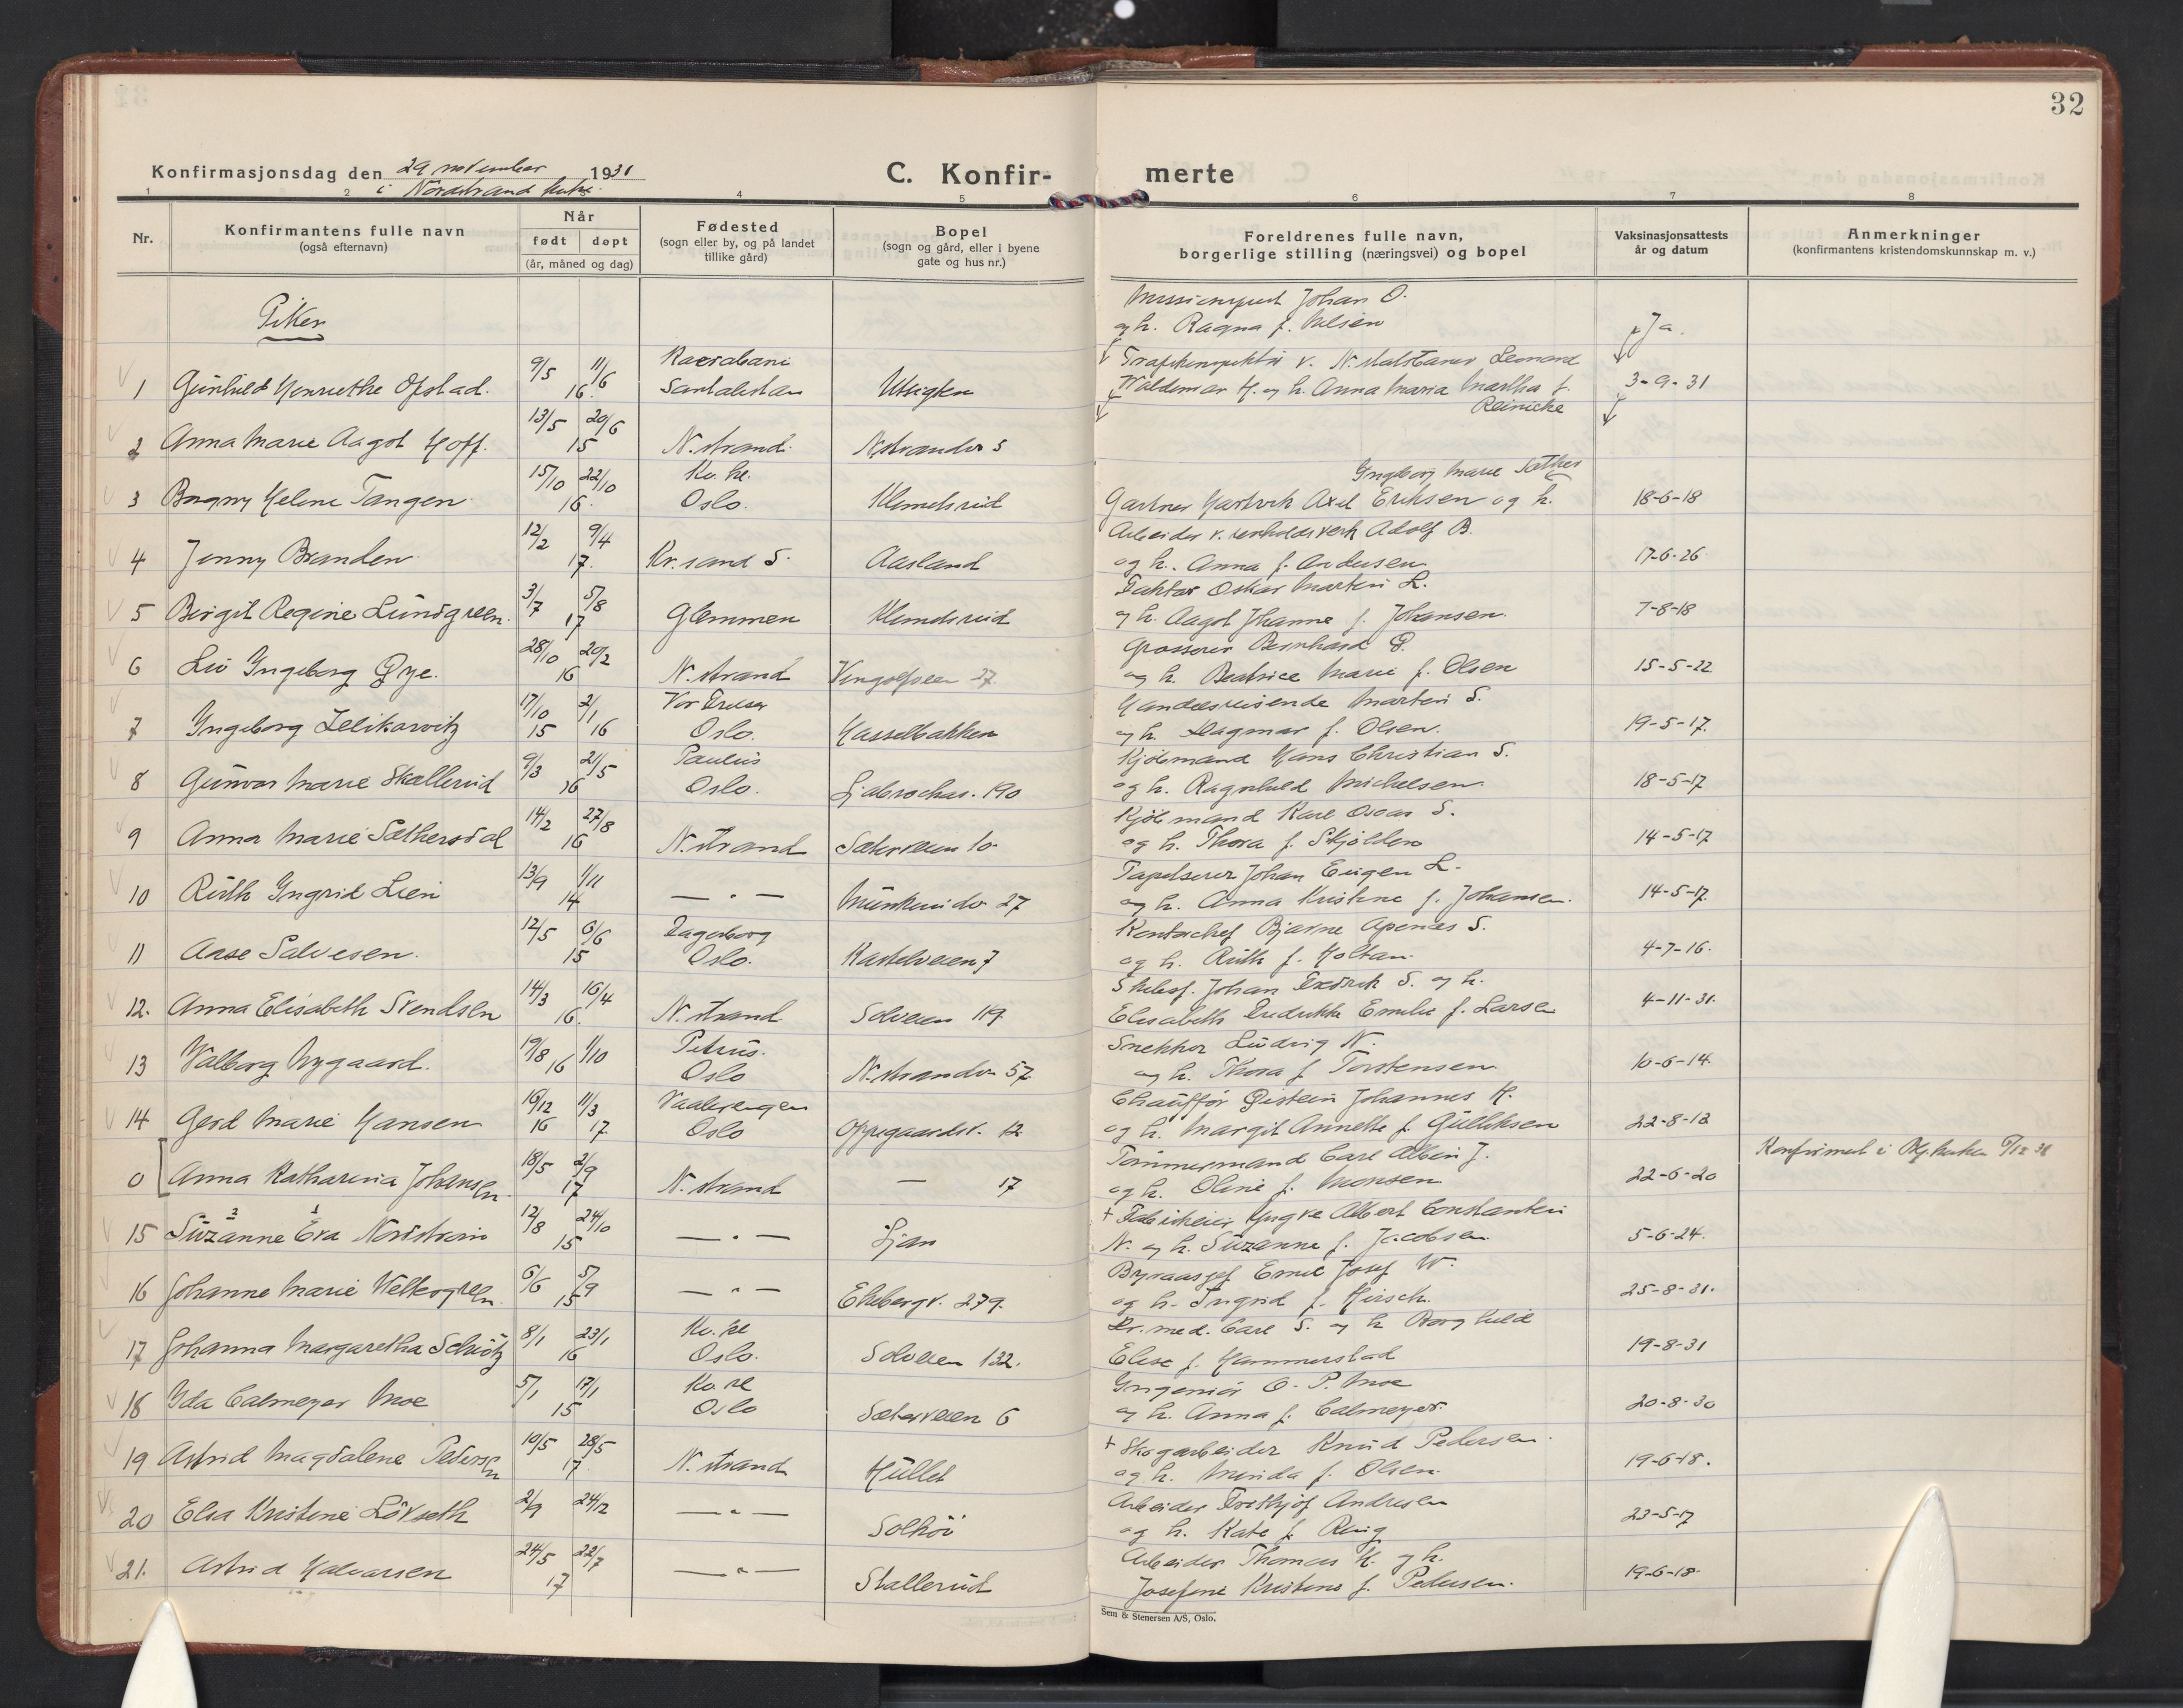 32
Konfirmasjonsdag den 29 november 1931
i Nordstrand kirke.
C. Konfir- merte
1 2 3 4 5 6 7 8
Nr.
Konfirmantens fulle navn
(også efternavn)
Når
født døpt
(år, måned og dag)
Fødested
(sogn eller by, og på landet
tillike gård)
Bopel
(sogn og gård, eller i byene
gate og hus nr.)
Foreldrenes fulle navn,
borgerlige stilling (næringsvei) og bopel
Vaksinasjonsattests
år og datum
Anmerkninger
(konfirmantens kristendomskunnskap m. v.)
Piker
Johan O.
og h. Ragna f. Nilsen
Ja.
1 Gunhild Henriette Ofstad. 9/5 11/6 16. Santalistan Utsigten
v. N. Statsbaner Leonard
Valdemar H. og h. Anna Maria Martha f.
Reinicke
3-9-31
2 Anna Marie Aagot Hoff. 13/5 20/6 15 N. strand. N.strandv 5
3 Bugny Helene Tangen 15/10 22/10 16. Oslo.
Ingeborg Marie Sæther
Gartner Hartvik Axel Eriksen og h.
18-6-18
4 Jenny Branden 12/2 9/4 17. Kr. sand S. Aasland
Arbeider v. renholdsverk Adolf B.
og h. Anna f. Andersen
17-6-26
5 Birgit Regine Lundgreen. 3/7 5/8 17 Glemmen
Faktor Oskar Martin L.
og h. Aagot Johanne f. Johansen.
7-8-18
6 Liv Ingeborg Øye. 28/10 20/2 16 N. strand Vingolfveien 27.
Grosserer Bernhard Ø.
og h. Beatrice Marie f. Olsen
15-5-22
7 Ingeborg Selikowitz 17/10 2/1 15 16 Vor Frelser Oslo. Hasselbakken
Handelsreisende Martin S.
og h. Dagmar f. Olsen.
19-5-17.
8 Gunvor Marie Skullerud 9/3 21/5 16 Paulus Oslo. Ljabrochas. 190
Kjöbmand Hans Christian S.
og h. Ragnhild Michelsen.
18-5-17
9 Anna Marie Sæthersdal 14/2 27/8 16 N. strand Sæterveien 10
Kjöbmand Karl Oscar S.
og h. Thora f. Skjolden
14-5-17
10 Ruth Ingrid Lien 13/9 1/11 14 — " — Munkerudv 27
Tapetserer Johan Eugen L.
og h. Anna Kristine f. Johansen.
14-5-17.
11 Aase Salvesen. 12/5 6/6 15 Fagerborg Oslo. Kastelveien 7
Kontorchef Bjarne Apenes S.
og h. Ruth f. Holtan.
4-7-16.
12. Anna Elisabeth Svendsen 14/3 16/4 16. N. strand Solveien 119.
Johan Fredrik S. og h.
Elisabeth Fredrikke Emilie f. Larsen
4-11-31.
13 Valborg Nygaard. 19/8 1/10 16 Petrus. Oslo N. strandv 57.
Snekker Ludvig N.
og h. Thora f. Torstensen
10-6-14.
14 Gerd Marie Hansen 16/12 11/3 16 17. Vaalerengen Oslo Oppegaardsv. 12
Chauffør Øistein Johannes H.
og h. Margit Annette f. Gulliksen
22-8-18
0 Anna Katharina Johansen. 18/5 2/9 17 N. strand — 17
Tømmermand Carl Albin J.
og h. Oline f. Monsen
22-6-20
15 Suzanne Eva Nordstrøm 12/8 24/10 15 — " — Ljan
+ Yngve Albert Constantin
N. og h. Suzanne f. Jacobsen
5-6-24.
16 Johanne Marie Weltergreen. 6/6 5/9 15 — " — Ekebergv. 279.
Emil Josef W.
og h. Ingrid f. Hirsch.
25-8-31.
17 Johanna Margaretha Schiötz 8/1 23/1 16 Oslo. Solveien 132.
Dr. med. Carl S. og h Borghild
Elise f. Hammerstad
19-8-31
18 Ida Calmeyer Moe 5/1 17/1 15 Oslo Sæterveien 6
Ingeniør O. P. Moe
og h. Anna f. Calmeyer.
20-8-30
19 Astrid Magdalene Pedersen 10/5 28/5 17. N. strand Hullet
+ Skogarbeider Knud Pedersen.
og h. Minda f. Olsen.
19-6-18.
20 Elsa Kristine Lövseth 2/9 24/12 — " — Solhöi
Arbeider Fritjof Andresen
og h. Kate f. Ring
23-5-17
21. Astrid Halvorsen 24/5 22/7 17 — " — Skullerud
Arbeider Thomas H. og h.
Josefine Kristine f. Pedersen.
19-6-18.
Sem & Stenersen A/S, Oslo.